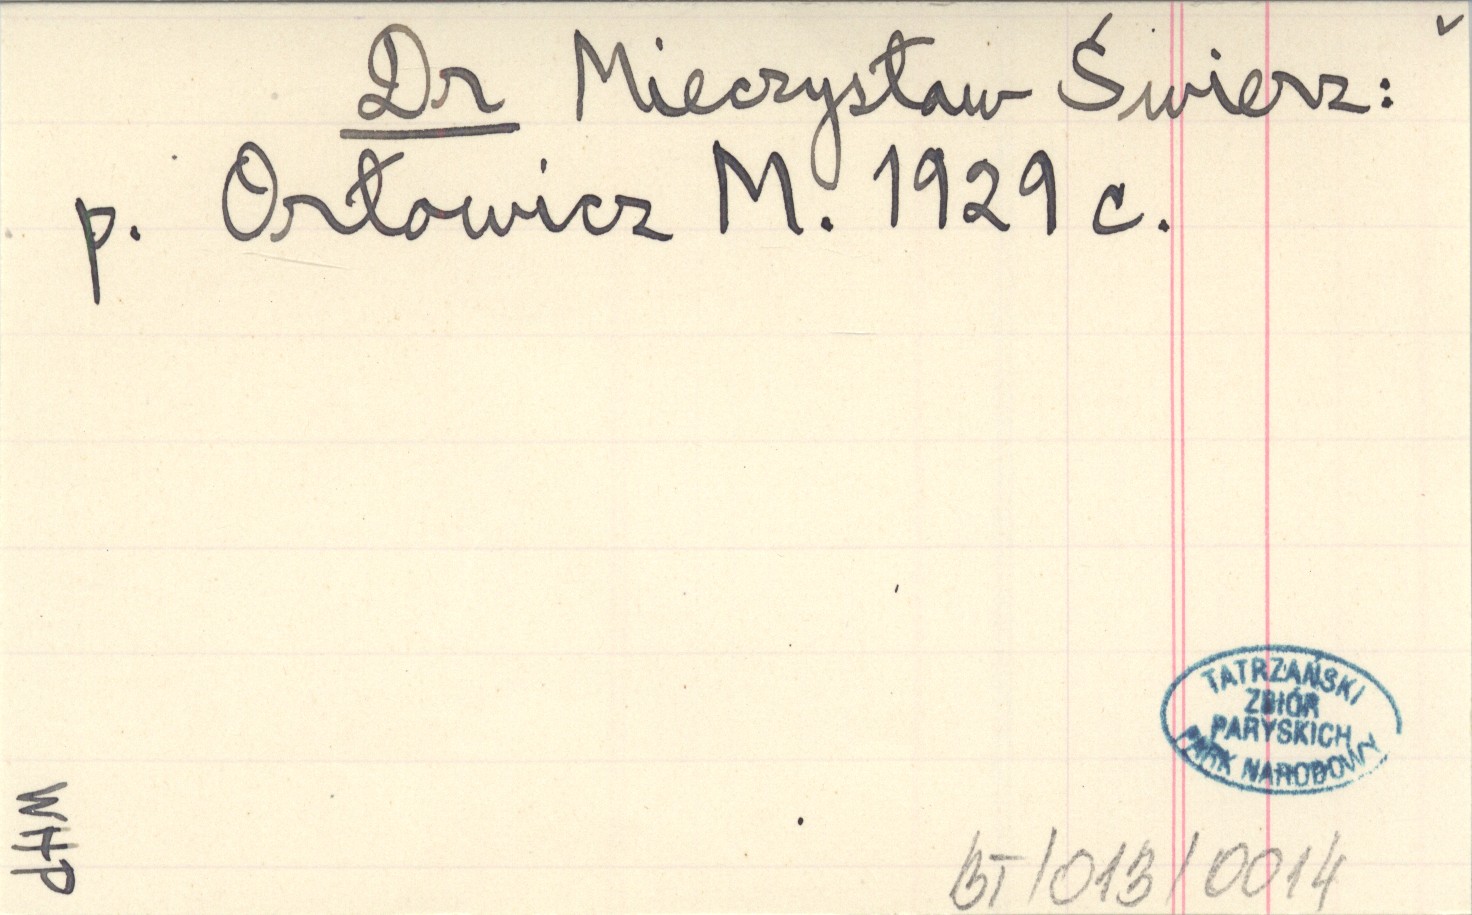 Dr Mieczysław Świerz:
p. Orłowicz M. 1929 c.
TATRZAŃSKI
ZBIÓR
PARYSKICH
PARK NARODOWY
WHP
BT/013/0014